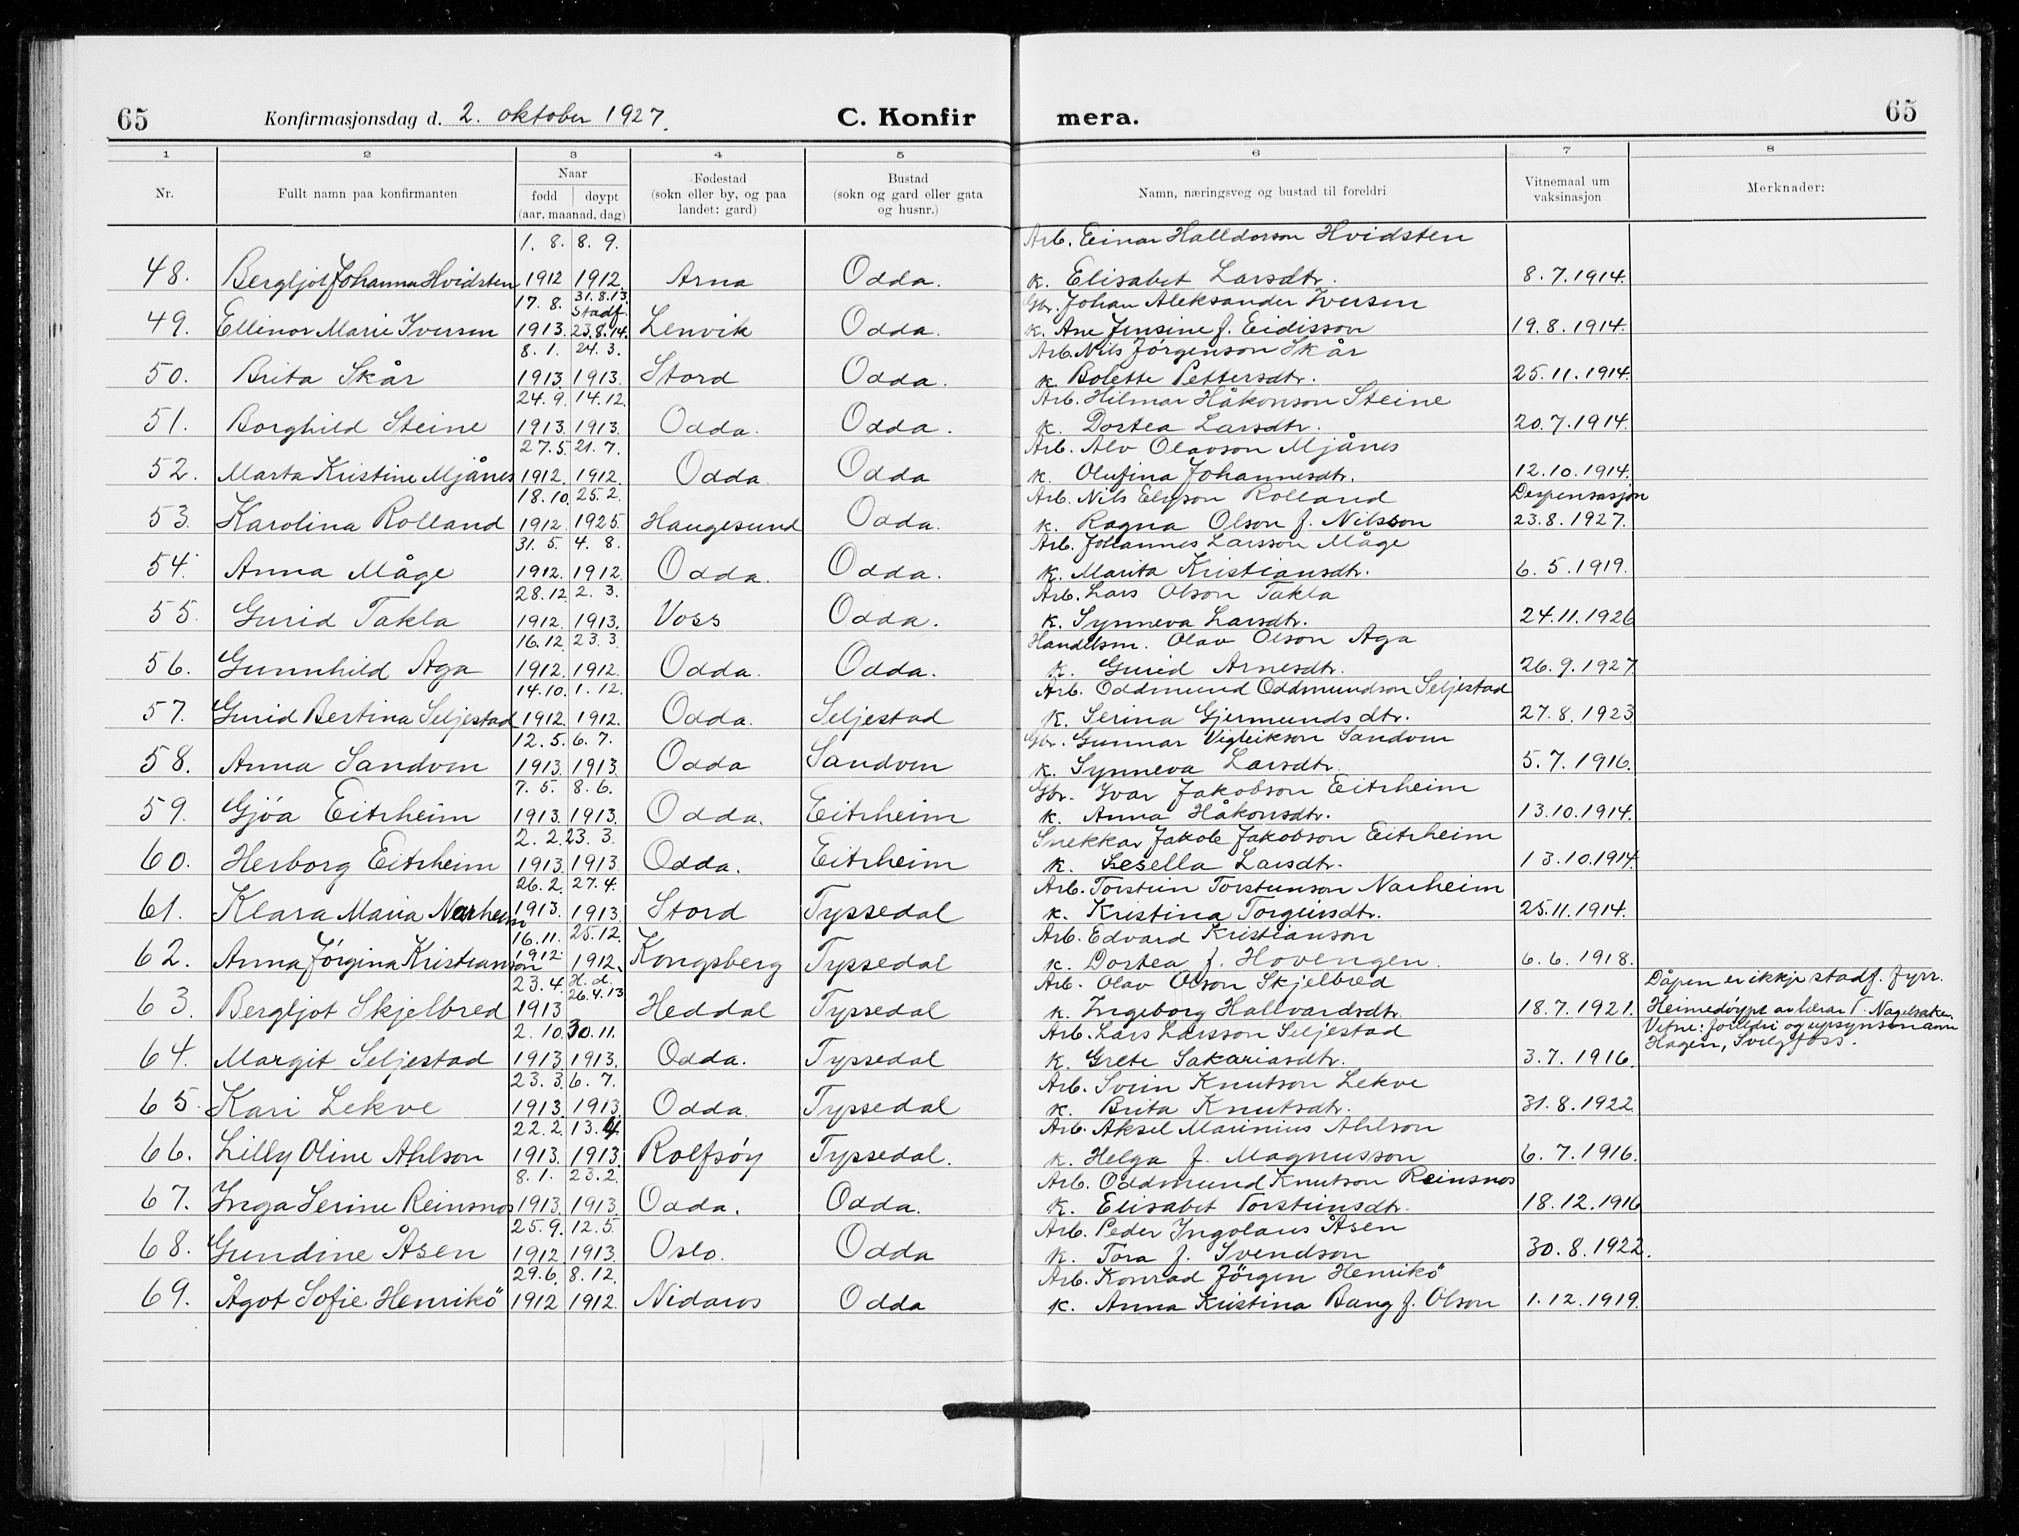 65 Konfirmasjonsdag d. 2. oktober 1927. C. Konfir mera. 65
1 2 3 4 5 6 7 8
Nr. Fullt namn paa konfirmanten Naar Fødestad Bustad Namn, næringsveg og bustad til foreldri Vitnemaal um Merknader:
født døypt (sokn eller by, og paa (sokn og gard eller gata vaksinasjon
(aar, maanad, dag) landet: gard) og husnr.)
1. 8. 8. 9. Arb. Einar Halldorson Hvidsten
48. Bergljot Johanna Hvidsten 1912 1912. Arna Odda. k. Elisabet Larsdtr. 8.7.1914.
17. 8. 31.8.13. Stadf. Gbr. Johan Aleksander Iversen
49. Ellinor Marie Iversen 1913. 23.8.14. Lenvik Odda. k. Ane Jensine f. Eidisson 19.8.1914.
8. 1. 24. 3. Arb. Nils Jørgenson Skår
50. Brita Skår 1913. 1913. Stord Odda. k. Bolette Pettersdtr. 25.11.1914.
24. 9. 14. 12. Arb. Hilmar Håkonson Steine
51. Borghild Steine 1913. 1913. Odda. Odda. k. Dortea Larsdtr. 20.7.1914.
27. 5. 21. 7. Arb. Alv Olavson Mjånes
52. Marta Kristine Mjånes 1912. 1912. Odda Odda k. Olufina Johannesdtr. 12.10.1914.
18. 10. 25. 2. Arb. Nils Elyson Rolland Despensasjon
53. Karolina Rolland 1912 1925. Haugesund Odda. k. Ragna Olson f. Nilsson 23.8.1927.
31. 5. 4. 8. Arb. Johannes Larsson Måge
54. Anna Måge 1912. 1912. Odda. Odda. k. Marita Kristiansdtr. 6.5.1919.
28. 12. 2. 3. Arb. Lars Olson Takla
55. Gurid Takla 1912. 1913. Voss Odda. k. Synneva Larsdtr. 24.11.1926
16. 12. 23. 3. Handelsm. Olav Olson Aga
56. Gunnhild Aga 1912. 1912. Odda. Odda. k. Gurid Arnesdtr. 26.9.1927.
14. 10. 1. 12. Arb. Oddmund Oddmundson Seljestad
57. Gurid Bertina Seljestad 1912. 1912. Odda. Seljestad k. Serina Gjermundsdtr. 27.8.1923
12. 5. 6. 7. Gbr. Gunnar Vigleikson Sandven
58. Anna Sandven 1913. 1913. Odda Sandven k. Synneva Larsdtr. 5.7.1916.
7. 5. 8. 6. Gbr. Ivar Jakobson Eitrheim
59. Gjøa Eitrheim 1913. 1913. Odda. Eitrheim k. Anna Håkonsdtr. 13.10.1914.
2. 2. 23. 3. Snekkar Jakob Jakobson Eitrheim
60. Herborg Eitrheim 1913. 1913. Odda. Eitrheim k. Sesella Larsdtr. 13.10.1914.
26. 2. 27. 4. Arb. Torstein Torsteinson Narheim
61. Klara Maria Narheim 1913. 1913. Stord Tyssedal k. Kristina Torgeirsdtr. 25.11.1914.
16. 11. 25. 12. Arb. Edvard Kristianson
62. Anna Jørgina Kristianson 1912. 1912. Kongsberg Tyssedal k. Dortea f. Hovengen. 6.6.1918.
23. 4. H.d. Arb. Olav Olson Skjelbred Dåpen er ikkje stadf. fyrr.
63. Bergljot Skjelbred 1913 26.4.13 Heddal Tyssedal k. Ingeborg Hallvardsdtr. 18.7.1921. Heimedøypt av lærar T. Nagelsaker.
2. 10. 30. 11. Arb. Lars Larsson Seljestad Vitne: foreldri og upsynsmann
64. Margit Seljestad 1913. 1913. Odda. Tyssedal k. Grete Sakariasdtr. 3.7.1916. Hagen, Svelgfoss.
23. 3. 6. 7. Arb. Svein Knutson Lekve
65. Kari Lekve 1913. 1913. Odda. Tyssedal k. Brita Knutsdtr. 31.8.1922
22. 2. 13. 4 Arb. Aksel Marinius Ahlson
66. Lilly Oline Ahlson 1913. 1913. Rolfsøy Tyssedal. k. Helga f. Magnusson 6.7.1916.
8. 1. 23. 2. Arb. Oddmund Knutson Reinsnos
67. Inga Serine Reinsnos 1913. 1913. Odda. Odda. k. Elisabet Torsteinsdtr. 18.12.1916
25. 9. 12. 5. Arb. Peder Ingolaus Åsen
68. Gundine Åsen 1912. 1913. Oslo. Odda k. Tora f. Svendson 30.8.1922.
29. 6. 8. 12. Arb. Konrad Jörgen Henrikö
69. Ågot Sofie Henrikö 1912 1912. Nidaros Odda k. Anna Kristina Bang f. Olson 1.12.1919.